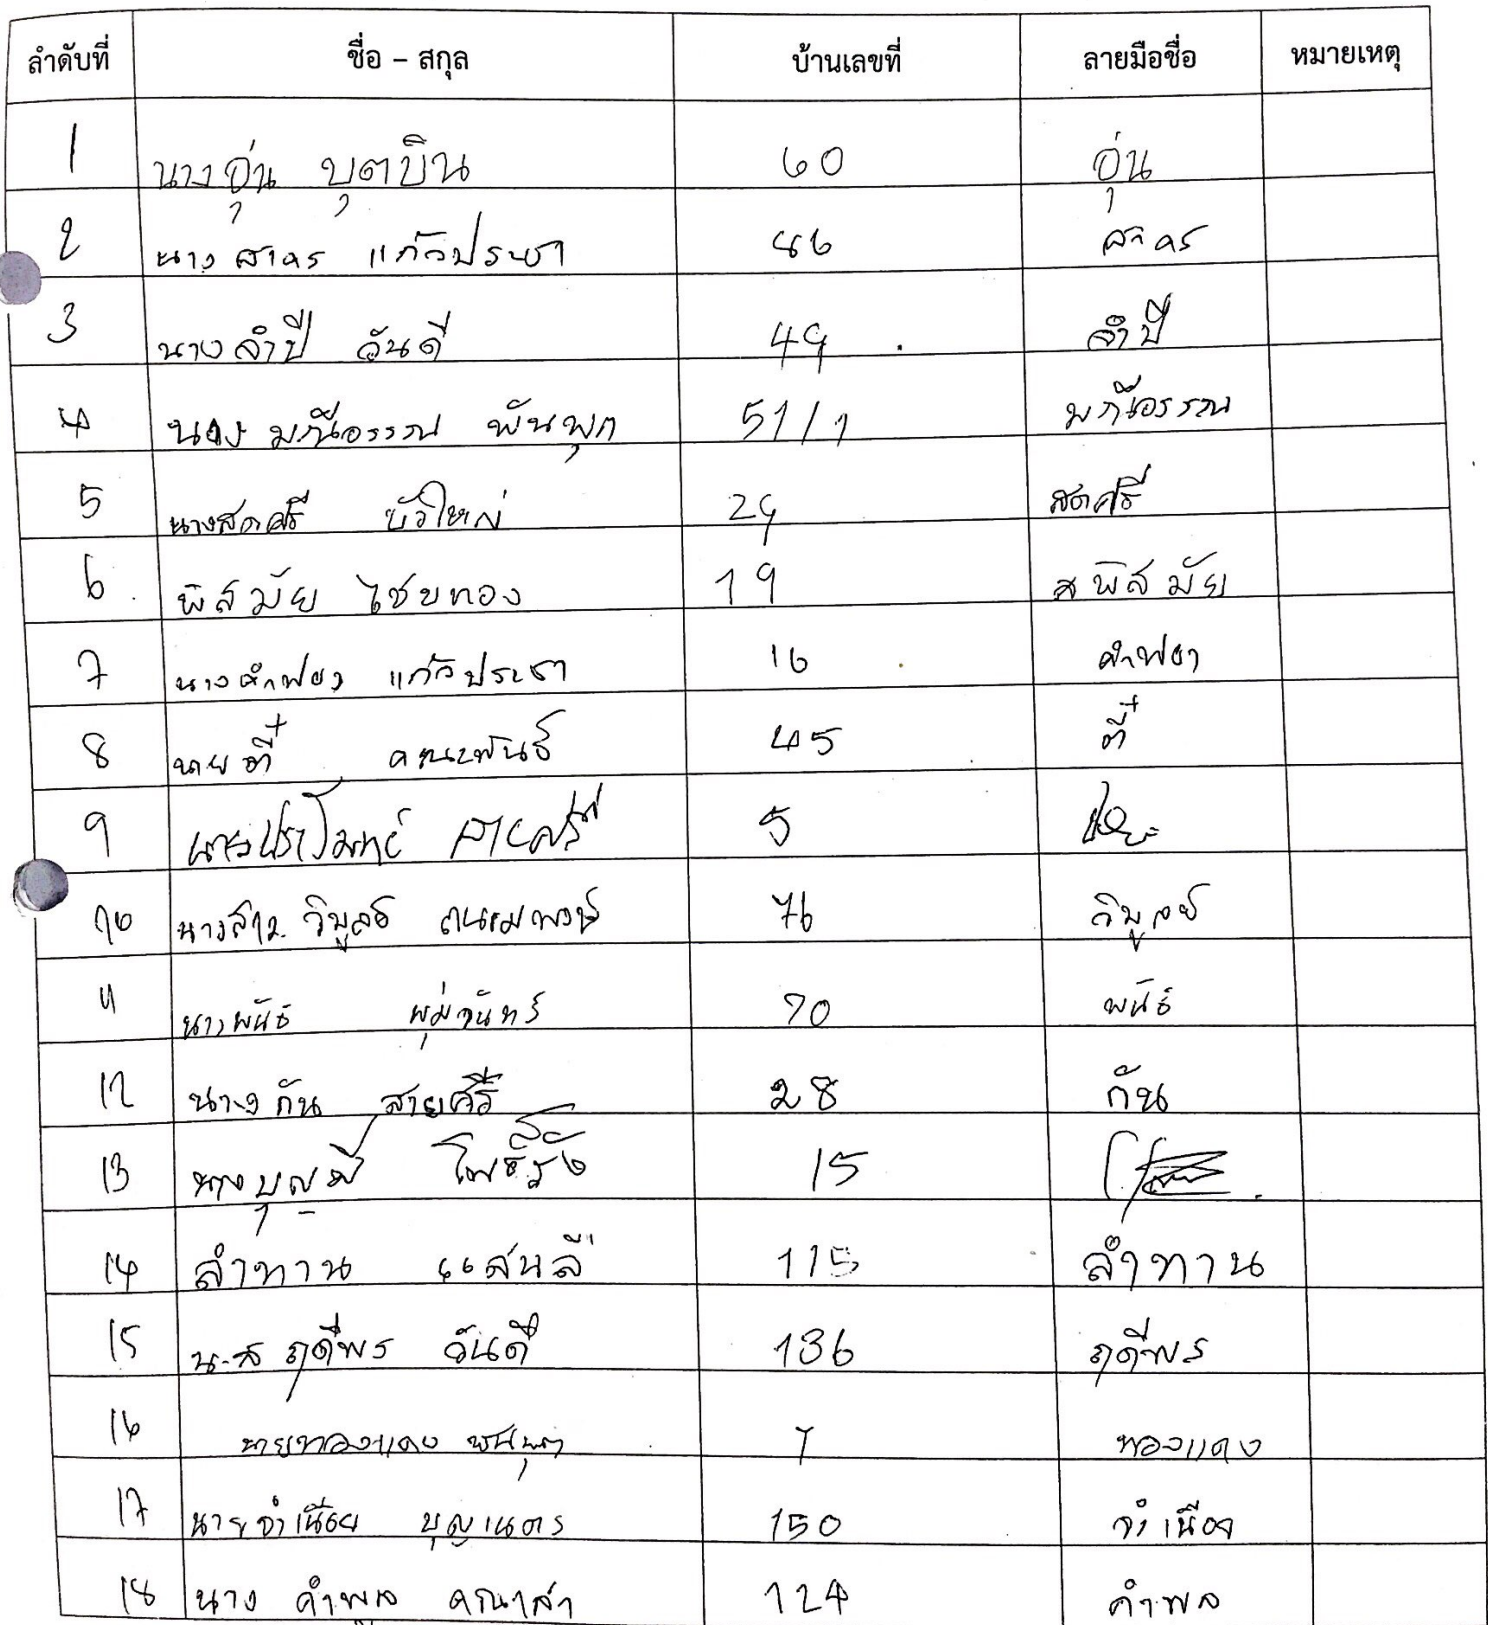 ลำดับที่ ชื่อ – สกุล บ้านเลขที่ ลายมือชื่อ หมายเหตุ
1 นางอุ่น บุตบิน 60 อุ่น
2 นาง สาคร แก้วประชา 46 สาคร
3 นาง ลำปี วันดี 49 ลำปี
4 นาง มณีอรรณ พันพุก 51/1 มณีอรรณ
5 นางสดศรี บัวใหญ่ 29 สดศรี
6 พิสมัย ไชยทอง 19 พิสมัย
7 นางคำฟอง แก้วประชา 16 คำฟอง
8 นาย ตี๋ คณะพันธ์ 45 ตี๋
9 สายศรี 5
10 นางสาว วิบูลย์ ถนอมพงษ์ 76 วิบูลย์
11 นางพันธ์ พุ่มจันทร์ 70 พันธ์
12 นาง กัน สายศรี 28 กัน
13 นาง บุญมี โพธิ์รัง 15
14 ลำทาน แสนลี 115 ลำทาน
15 น.ส ฤดีพร วันดี 136 ฤดีพร
16 นายทองแดง 7 ทองแดง
17 นายจำเนียย บุญเนตร 150 จำเนีย
18 นาง คำพล 124 คำพล